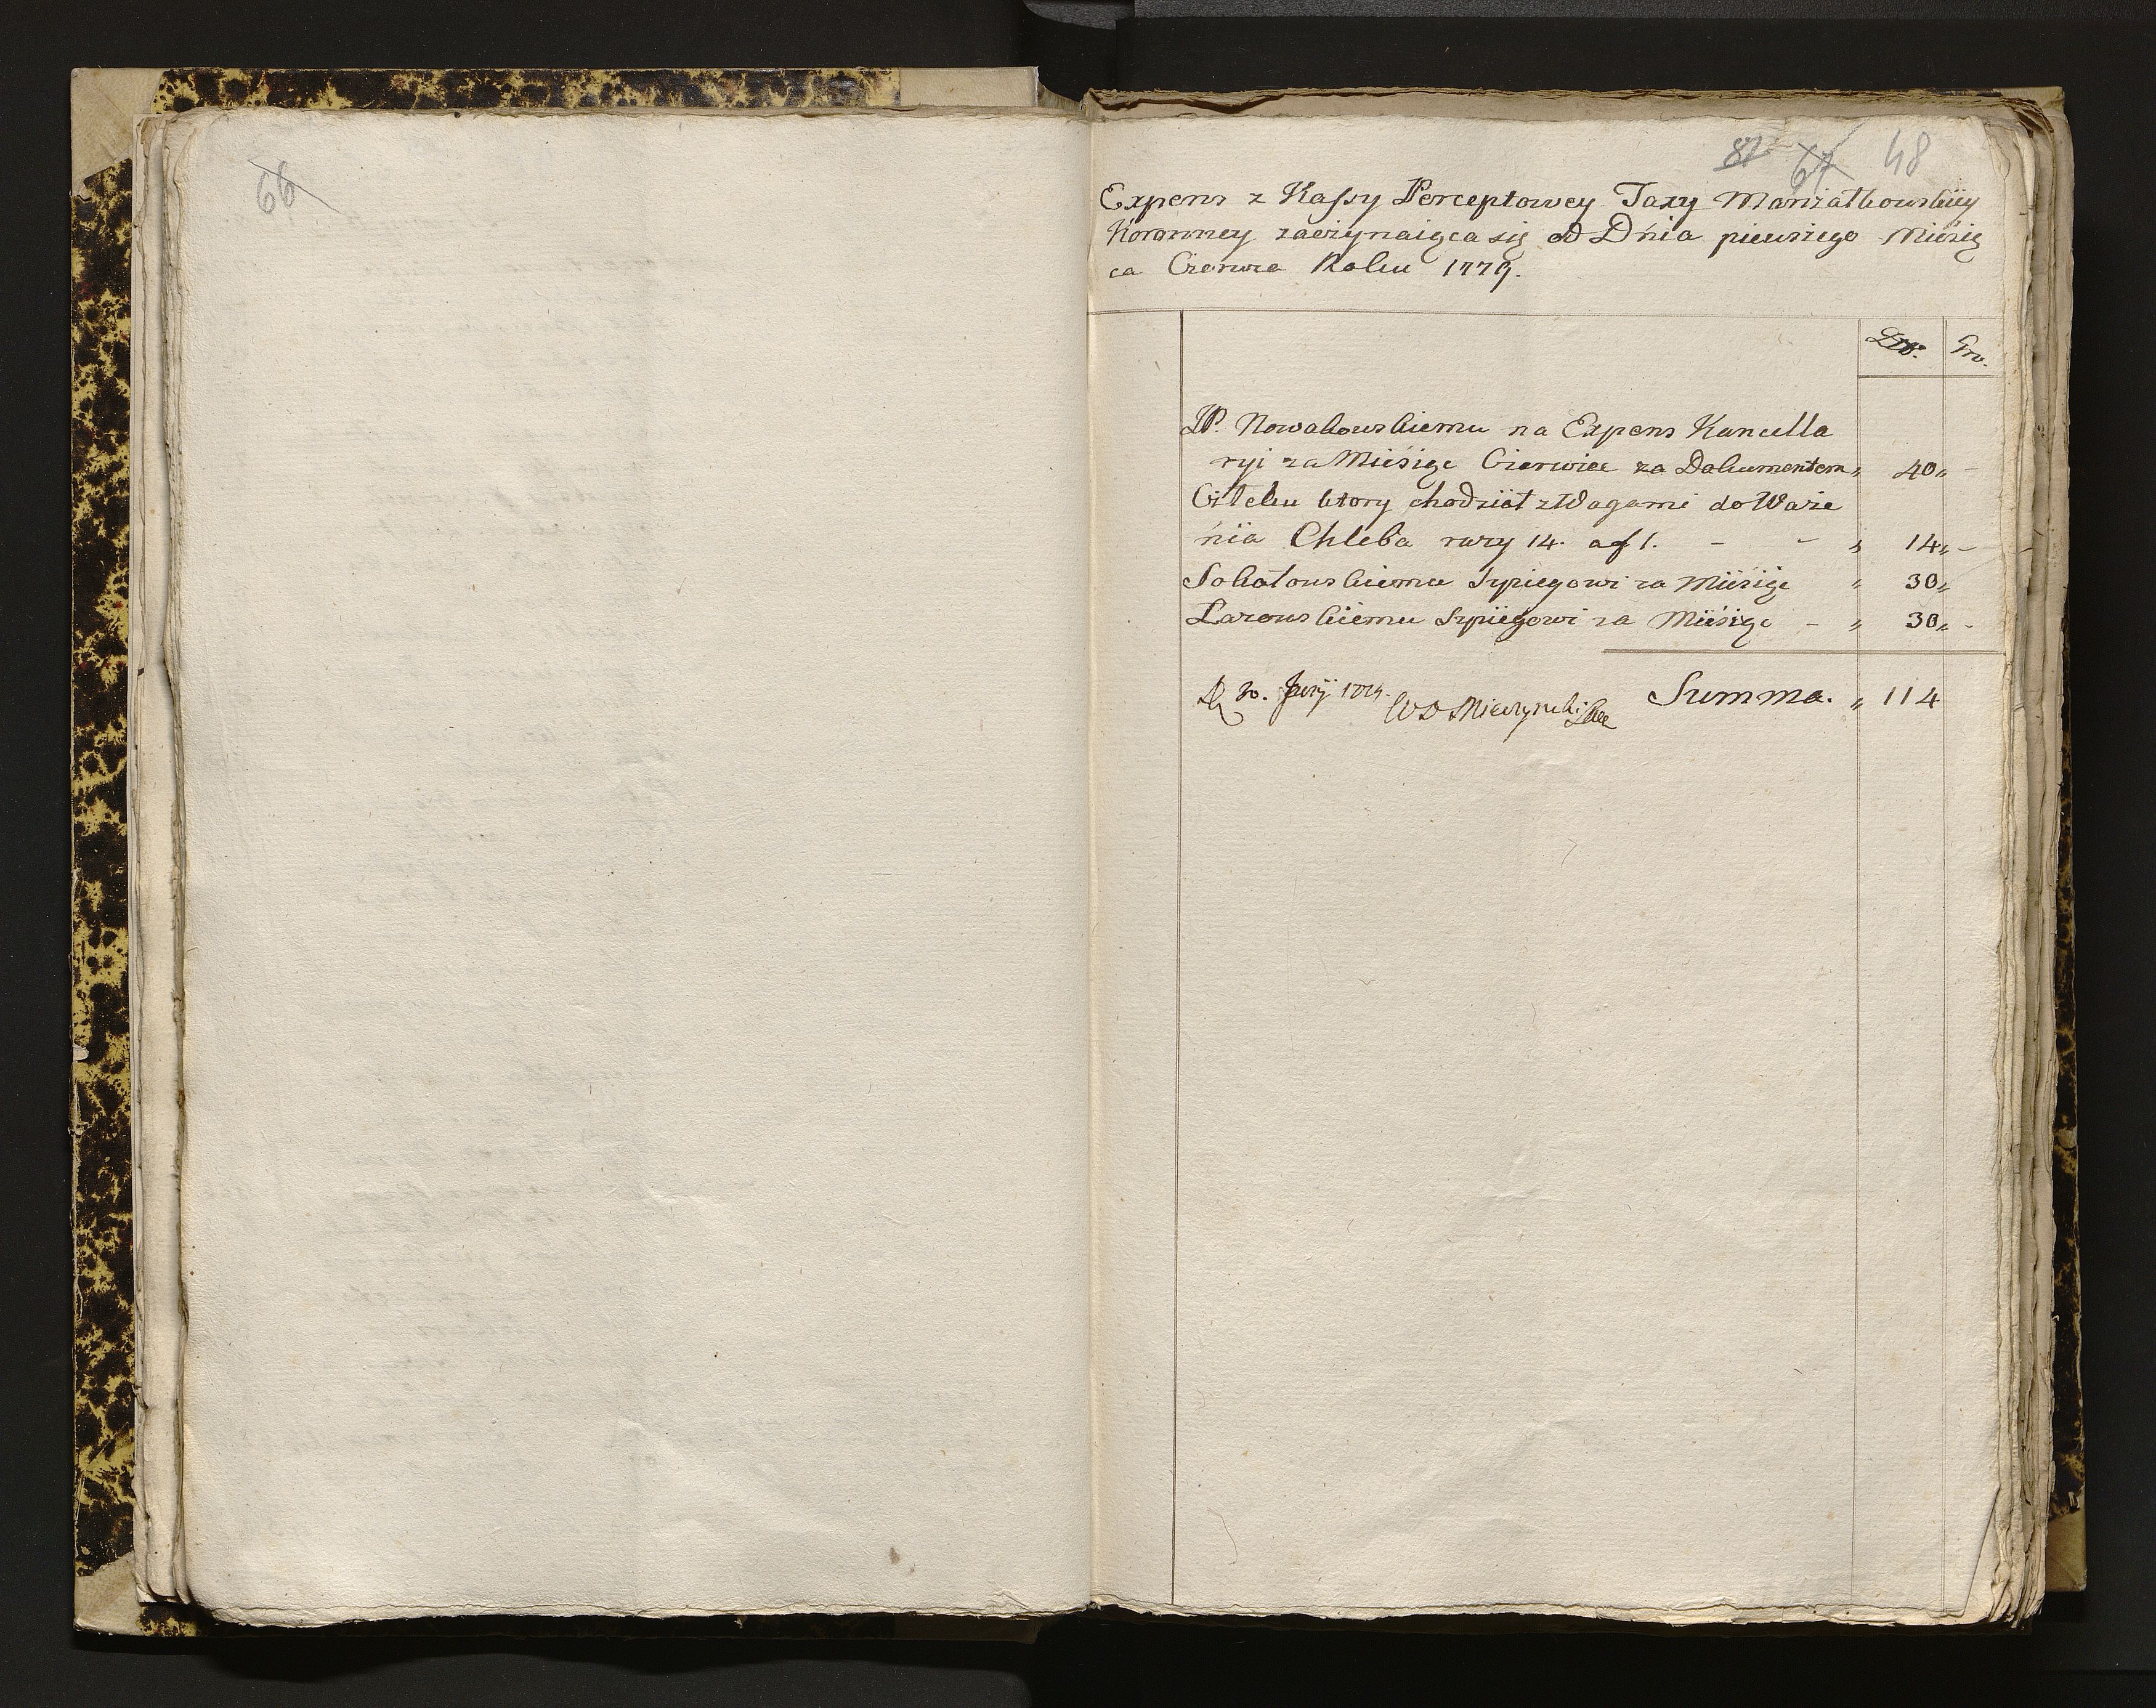 66
87 67 48
Expens z Kassy Perceptowey Taxy Marszałkowskiiy
Koronney zaczynaiąca się od Dnia pierwszego Miesią
ca Czerwca Roku 1779.
Zło. Gro.
JP. Nowakowskiemu na Expens Kancella
ryi za Miesiąc Czerwiec za Dokumentem „ 40 „ -
Citeku ktory chodzieł z Wagami do Waże
nia Chleba razy 14. a f 1. - - „ 14 „ -
Sokołowskiemu Szpiegowi za Miesiąc „ 30 „
Lazowskiemu Szpiegowi za Miesiąc - „ 30 „ -
D. 30. Junij 1779. Mierzynski Summa. „ 114